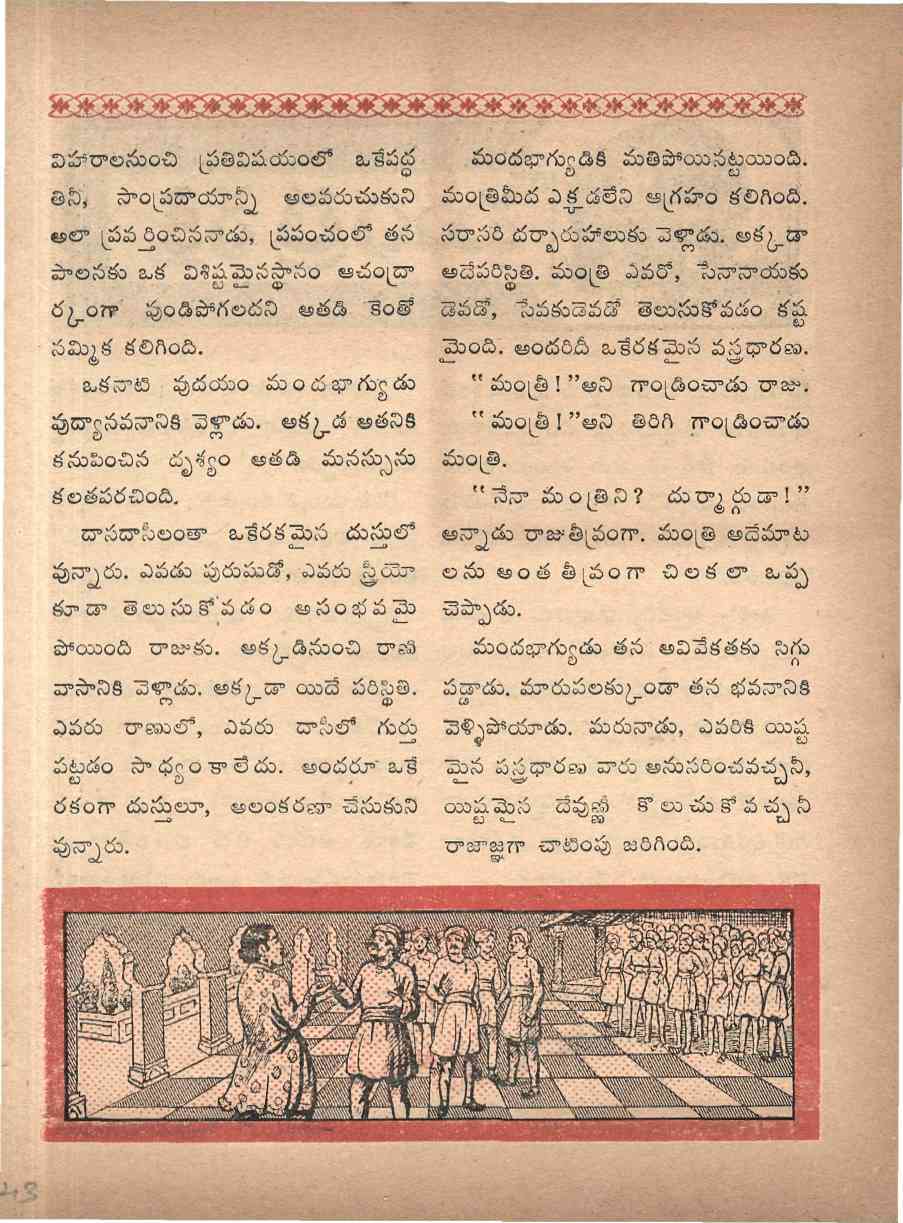 విహారాలనుంచి ప్రతివిషయంలో ఒకేపద్ధ
తినీ, సాంప్రదాయాన్నీ అలవరుచుకుని
అలా ప్రవర్తించిననాడు, ప్రపంచంలో తన
పాలనకు ఒక విశిష్టమైనస్థానం ఆచంద్రా
ర్కంగా వుండిపోగలదని అతడి కెంతో
నమ్మిక కలిగింది.
ఒకనాటి వుదయం మందభాగ్యుడు
వుద్యానవనానికి వెళ్లాడు. అక్కడ అతనికి
కనుపించిన దృశ్యం అతడి మనస్సును
కలతపరచింది.
దాసదాసీలంతా ఒకేరకమైన దుస్తులో
వున్నారు. ఎవడు పురుషుడో, ఎవరు స్త్రీయో
కూడా తెలుసుకోవడం అసంభవమై
పోయింది రాజుకు. అక్కడినుంచి రాణి
వాసానికి వెళ్లాడు. అక్కడా యిదే పరిస్థితి.
ఎవరు రాణులో, ఎవరు దాసీలో గుర్తు
పట్టడం సాధ్యంకాలేదు. అందరూ ఒకే
రకంగా దుస్తులూ, అలంకరణా చేసుకుని
వున్నారు.
మందభాగ్యుడికి మతిపోయినట్టయింది.
మంత్రిమీద ఎక్కడలేని ఆగ్రహం కలిగింది.
సరాసరి దర్బారుహాలుకు వెళ్లాడు. అక్కడా
అదేపరిస్థితి. మంత్రి ఎవరో, సేనానాయకు
డెవడో, సేవకుడెవడో తెలుసుకోవడం కష్ట
మైంది. అందరిదీ ఒకేరకమైన వస్త్రధారణ.
"మంత్రీ!"అని గాండ్రించాడు రాజు.
"మంత్రీ!"అని తిరిగి గాండ్రించాడు
మంత్రి.
"నేనా మంత్రిని? దుర్మార్గుడా!"
అన్నాడు రాజుతీవ్రంగా. మంత్రి అదేమాట
లను అంత తీవ్రంగా చిలకలా ఒప్ప
చెప్పాడు.
మందభాగ్యుడు తన అవివేకతకు సిగ్గు
పడ్డాడు. మారుపలక్కుండా తన భవనానికి
వెళ్ళిపోయాడు. మరునాడు, ఎవరికి యిష్ట
మైన వస్త్రధారణ వారు అనుసరించవచ్చనీ,
యిష్టమైన దేవుణ్ణీ కొలుచుకోవచ్చనీ
రాజాజ్ఞగా చాటింపు జరిగింది.
43